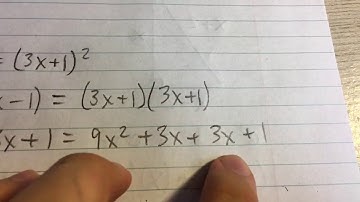 = (3x+1)²
x-1) = (3x+1)(3x+1)
x+1 = 9x²+3x+3x+1